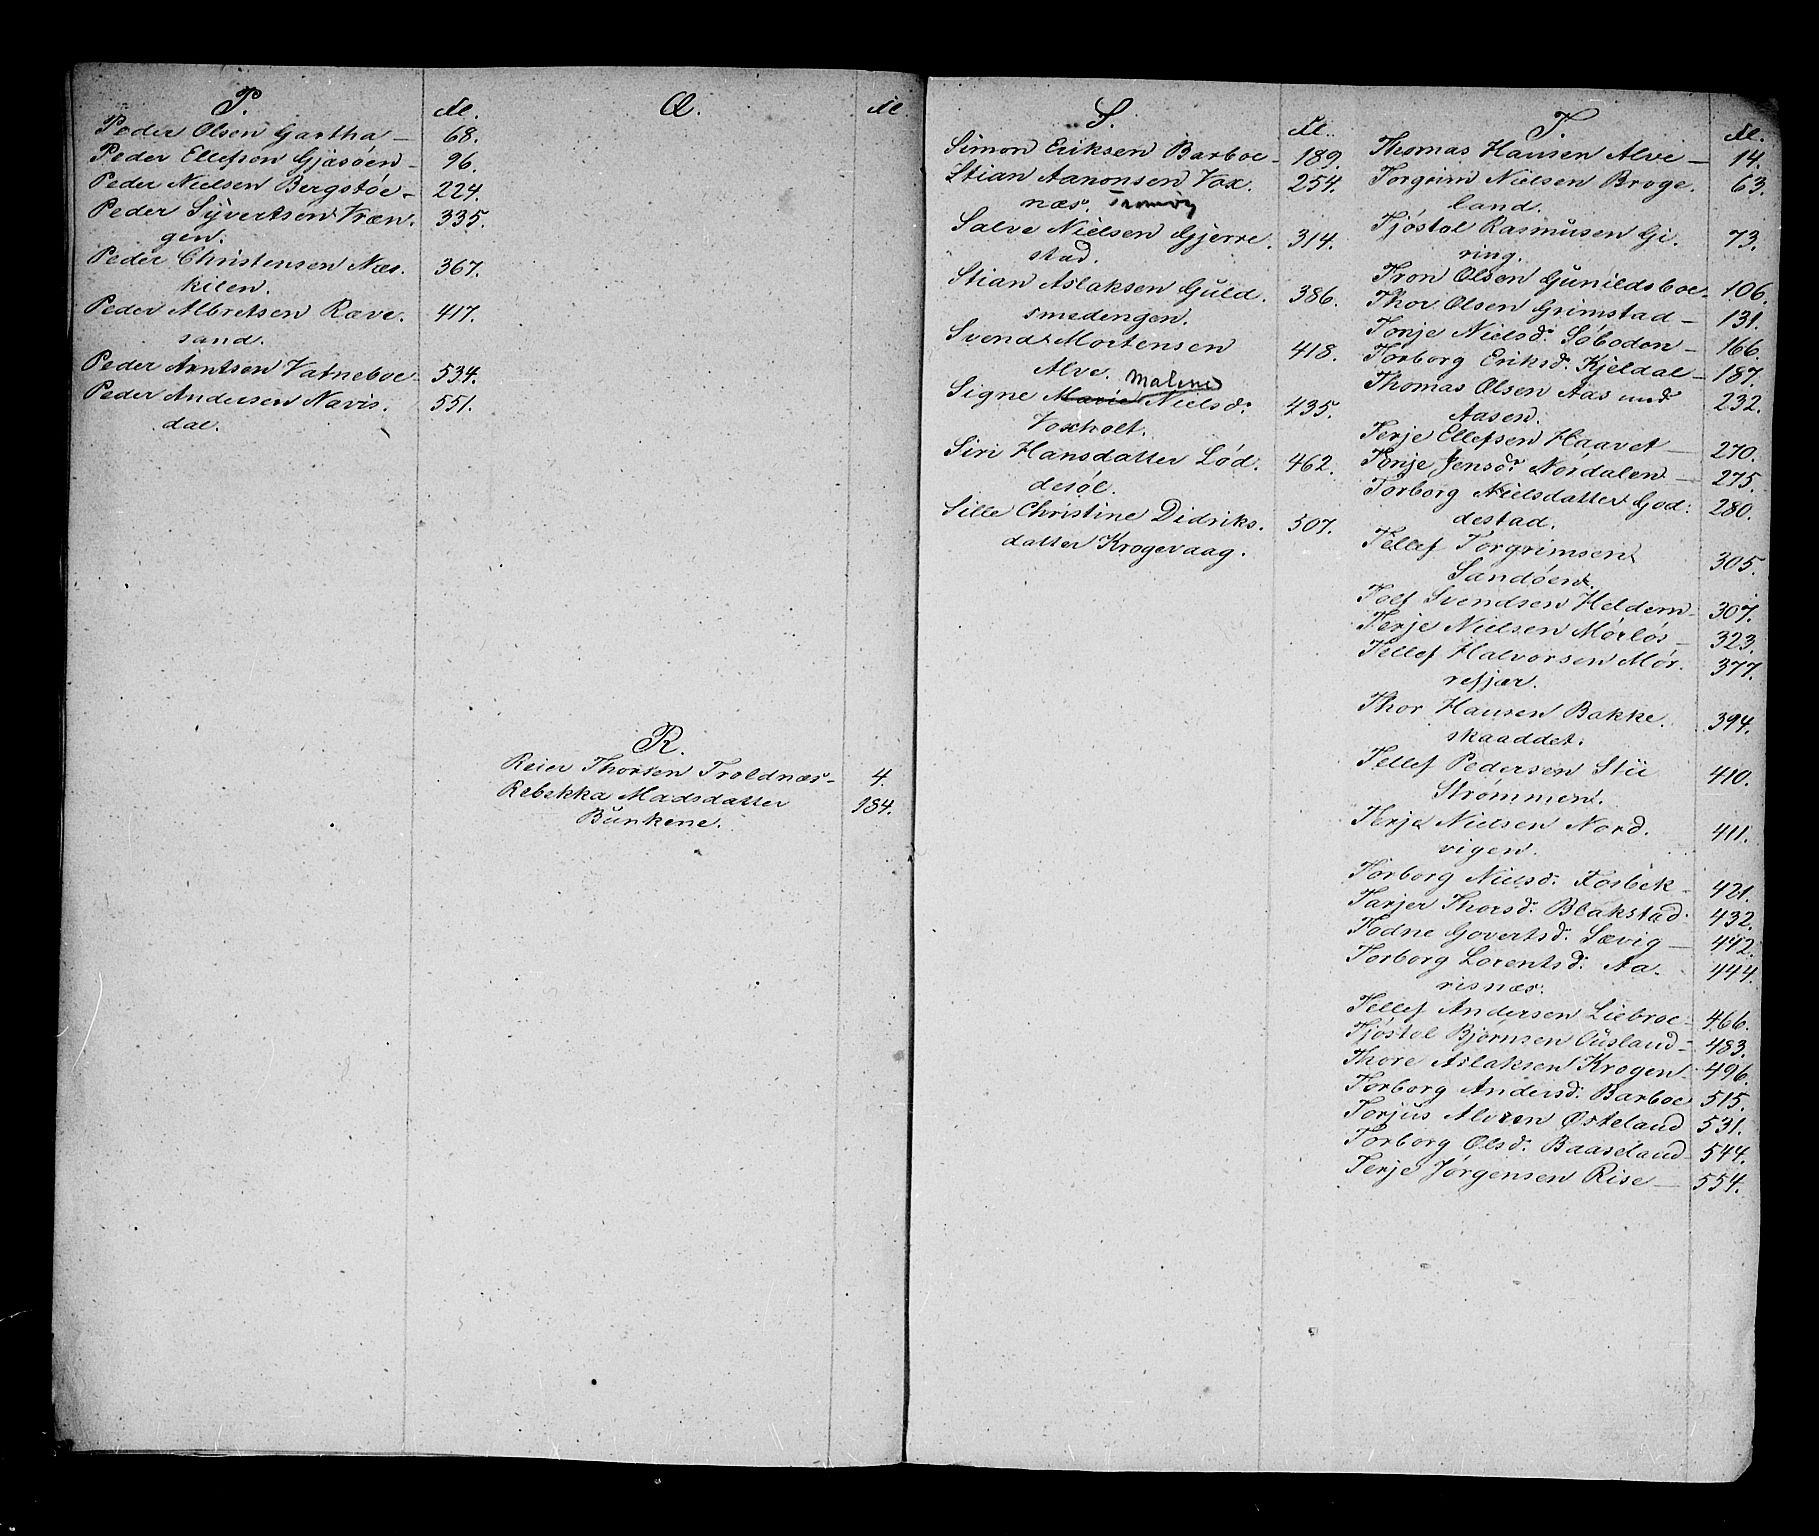 P. No.
Peder Olsen Gartha — 68.
Peder Ellefsen Gjæsøen — 96.
Peder Nielsen Bergstøe — 224.
Peder Syvertsen Vræn- 335.
gen.
Peder Christensen Næs- 367.
kilen.
Peder Albretsen Ræve- 417.
sand.
Peder Arntsen Vatneboe — 534.
Peder Andersen Navis- 551.
dal.
Q. No.
R.
Reier Thorsen Troldnæs — 4.
Rebekka Madsdatter 184.
Bunkene.
S. No.
Simon Eriksen Barboe — 189.
Stian Aanonsen Vox- 254.
næs. Tromøy
Salve Nielsen Gjerre- 314.
stad.
Stian Aslaksen Guld- 386.
smedengen.
Svend Mortensen 418.
Alve.
Malene
Signe Marie Nielsd. 435.
Voxholt.
Siri Hansdatter Lød- 462.
desøl.
Sille Christine Didriks- 507.
datter Krogevaag.
T. No.
Thomas Hansen Alve — 14.
Torgrim Nielsen Broge- 63.
land.
Tjøstol Rasmusen Gi- 73.
ring.
Tron Olsen Gunildsboe — 106.
Thor Olsen Grimstad — 131.
Tonje Nielsd. Søboden — 166.
Torborg Eriksd. Kjeldal — 187.
Thomas Olsen Aas und 232.
Aasen.
Terje Ellefsen Haavet — 270.
Tonje Jensdr Nordalen — 275.
Torborg Nielsdatter God- 280.
destad.
Tellef Torgrimsen 305.
Sandøen.
Tolf Svendsen Heldern — 307.
Terje Nielsen Mørløs — 323.
Tellef Halvorsen Mør- 377.
refjær.
Thor Hansen Bakke- 394.
skaaddet.
Tellef Pedersen Stu 410.
Strømmen.
Terje Nielsen Nord- 411.
vigen.
Torborg Nielsd. Fosbek — 421.
Tarjer Thorsd. Blakstad. 432.
Todne Govertsd. Sævig — 442.
Torborg Lorentsd. Aa- 444.
risnæs.
Tellef Andersen Liebroe — 466.
Tjøstol Bjørnsen Ousland — 483.
Thore Aslaksen Krogen — 496.
Torborg Andersd. Barboe 515.
Torjus Alvsen Østeland 531.
Torborg Olsd. Baaseland — 544.
Terje Jørgensen Rise — 554.